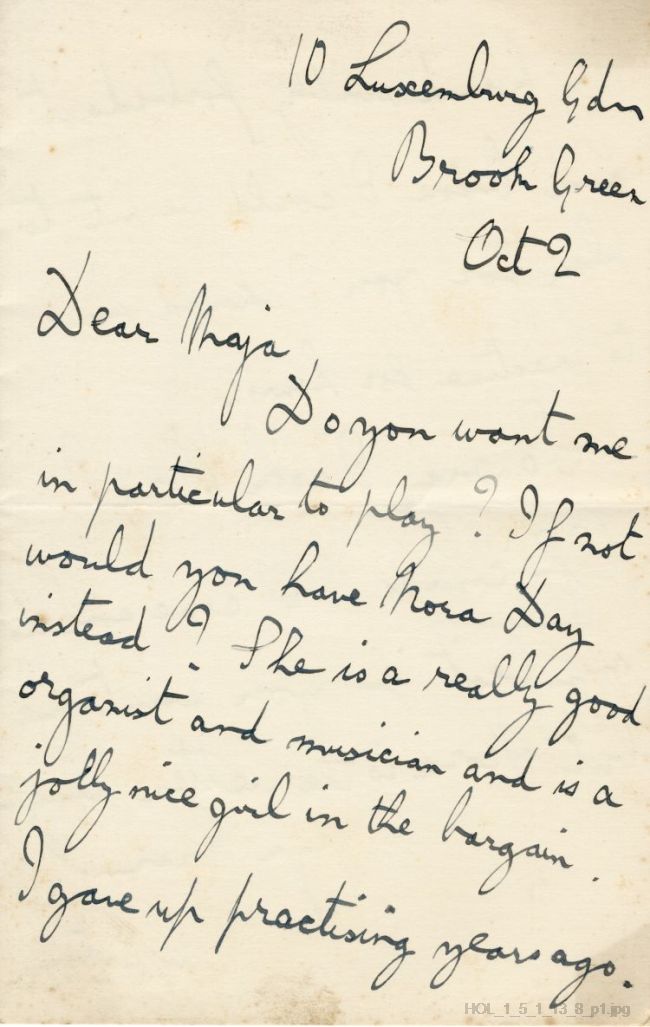 10 Luxemburg Gdns
Brook Green
Oct 2
Dear Maja
Do you want me
in particular to play? If not
would you have Nora Day
instead? She is a really good
organist and musician and is a
jolly nice girl in the bargain.
I gave up practising years ago.
HOL_1_5_1_13_8_p1.jpg